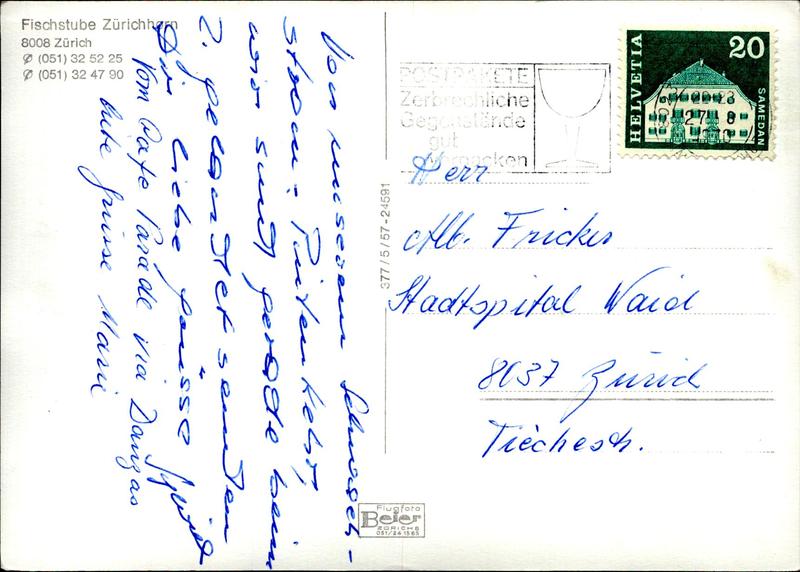 Fischstube Zürichhorn
8008 Zürich
(051) 32 52 25
(051) 32 47 90
Von unserem Schwach-
strom-
wir sind gerade beim
2. gelandet senden
Dir liebe Grüsse
Vom Café Parade via Danzas
liebe Grüsse Marie
377/5/57-24591
Flugfoto
Beier
ZÜRICH 8
051/24 15 65
POSTPAKETE
Zerbrechliche
Gegenstände
gut
verpacken
HELVETIA
20
SAMEDAN
27. 8
Herr
Alb. Fricker
Stadtspital Waid
8037 Zürich
Tièchestr.